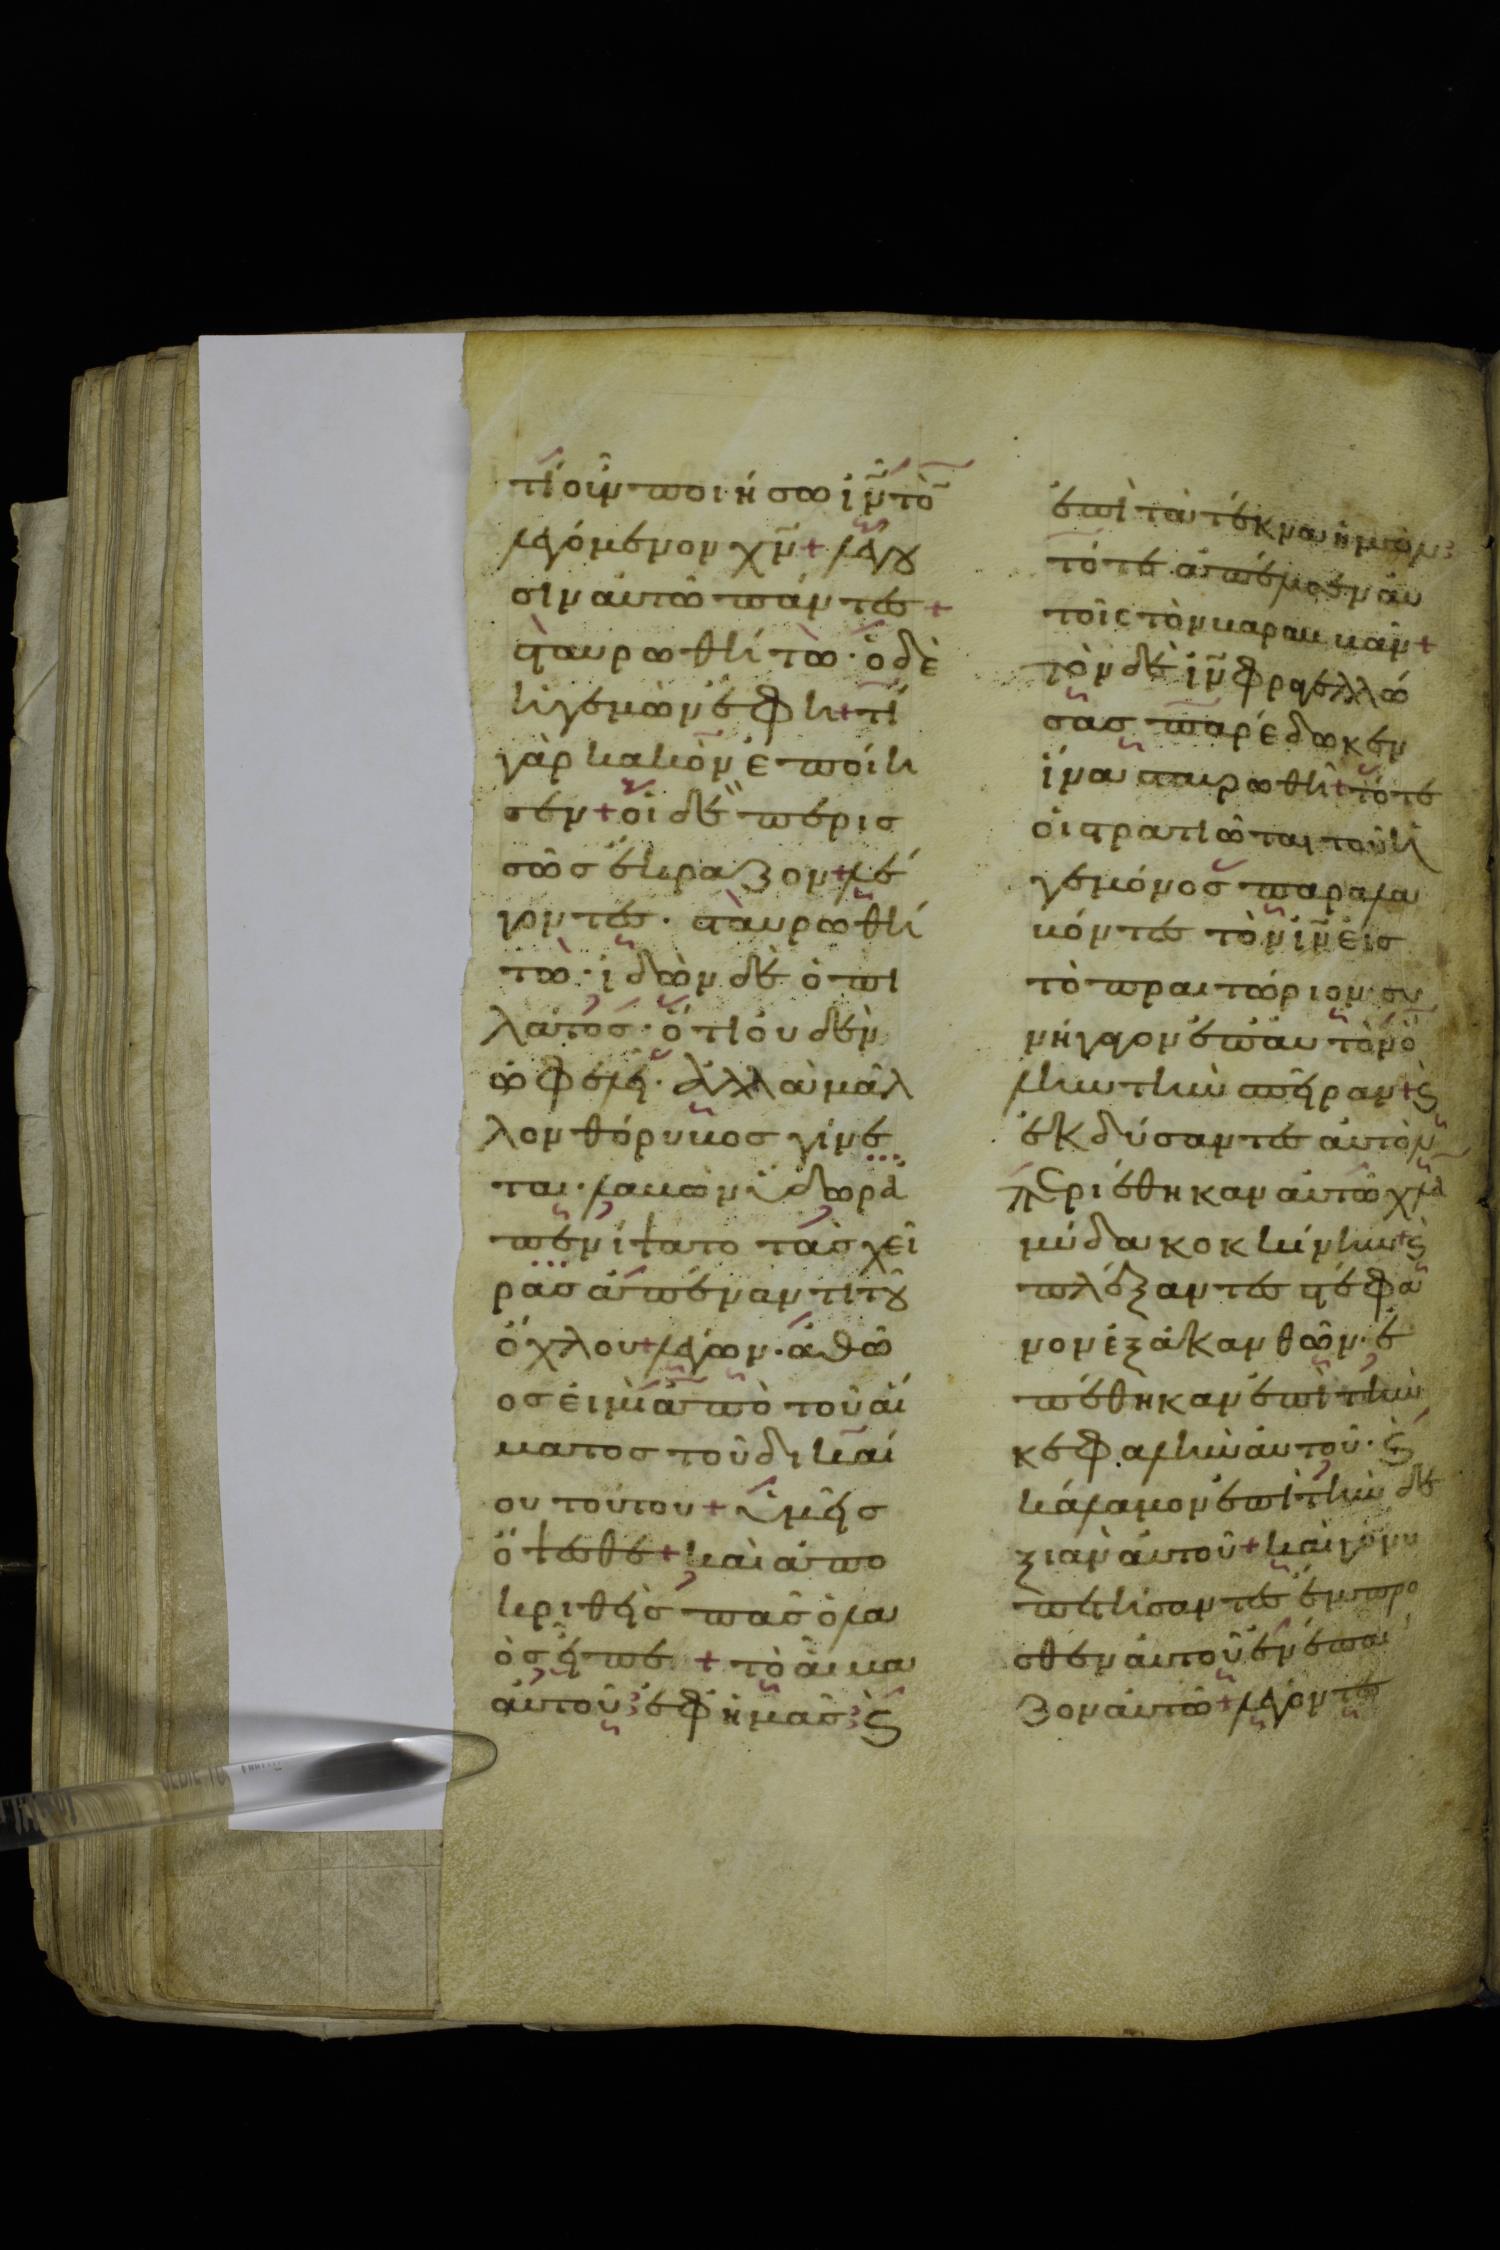 τί οὖν ποιήσω ιν̅ τὸ
λεγόμενον χν̅ + λέγου
σιν αὐτῶ πάντες +
σταυρωθήτω · ὁ δὲ
ἡγεμὼν ἔφη + τί
γὰρ κακὸν ἐποίη
σεν + οἱ δὲ περισ
σῶς ἔκραζον + λέ
γοντες · σταυρωθή
τω · ἰδὼν δὲ ὁ πι
λάτος · ὅτι οὐδὲν
ὠφελεῖ · ἀλλὰ μᾶλ
λον θόρυβος γίνε
ται · λαβὼν ὕδωρ ἀ
πενίψατο τὰς χεῖ
ρας ἀπέναντι τοῦ
ὄχλου + λέγων · ἀθῶ
ος εἰμὶ ἀπὸ τοῦ αἵ
ματος τοῦ δικαί
ου τούτου + ὑμεῖς
ὄψεσθε + καὶ ἀπο
κριθεὶς πᾶς ὁ λα
ὸς εἶπε + τὸ αἷμα
αὐτοῦ ἐφ ἡμᾶς ϗ
ἐπὶ τὰ τέκνα ἡμῶν
τότε ἀπέλυσεν αὐ
τοῖς τὸν βαραββᾶν +
τὸν δὲ ιν̅ φραγελλώ
σας παρέδωκεν
ἵνα σταυρωθῆ + τότε
οἱ στρατιῶται τοῦ ἡ
γεμόνος παραλα
βόντες τὸν ιν̅ εἰς
τὸ πραιτώριον · συ
νήγαγον ἐπ αὐτὸν ὅ
λην τὴν σπεῖραν + ϗ
ἐκδύσαντες αὐτὸν
περιέθηκαν αὐτῶ χλα
μύδα κοκκίνην + ϗ
πλέξαντες στέφα
νον ἐξ ἀκανθῶν · ἐ
πέθηκαν ἐπὶ τὴν
κεφαλὴν αὐτοῦ · ϗ
κάλαμον ἐπὶ τὴν δε
ξιὰν αὐτοῦ + καὶ γονυ
πετήσαντες ἔμπρο
σθεν αὐτοῦ ἐνέπαι
ζον αὐτῶ + λέγοντες